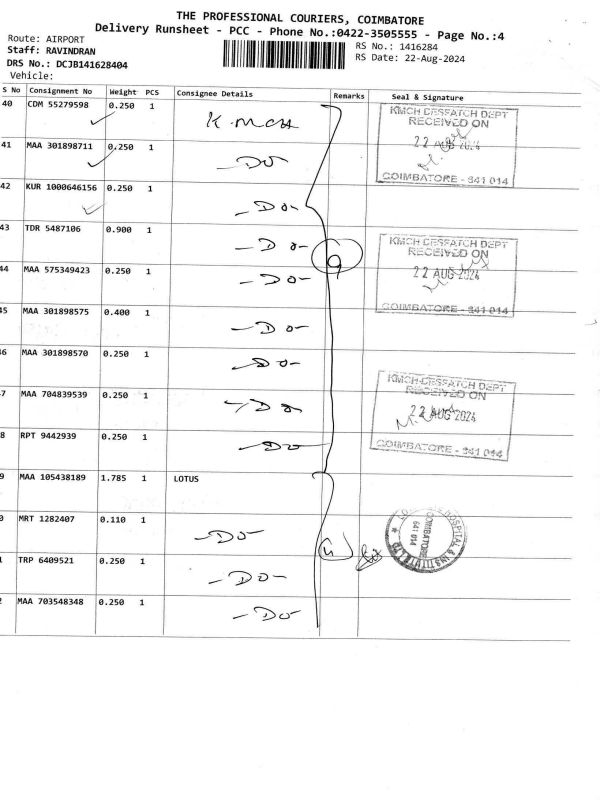 THE PROFESSIONAL COURIERS, COIMBATORE
Delivery Runsheet - PCC - Phone No.:0422-3505555 - Page No.:4
Route: AIRPORT
RS No.: 1416284
Staff: RAVINDRAN
RS Date: 22-Aug-2024
DRS No.: DCJB141628404
Vehicle:
S No Consignment No Weight PCS Consignee Details Remarks Seal & Signature
40 CDM 55279598 0.250 1 K.MCH
KMCH DESPATCH DEPT
RECEIVED ON
22 AUG 2024
COIMBATORE - 641 014
41 MAA 301898711 0.250 1 -DO
42 KUR 1000646156 0.250 1 -DO-
43 TDR 5487106 0.900 1 -DO-
9
KMCH DESPATCH DEPT
RECEIVED ON
22 AUG 2024
COIMBATORE - 641 014
44 MAA 575349423 0.250 1 -DO-
45 MAA 301898575 0.400 1 -DO-
6 MAA 301898570 0.250 1 -DO-
7 MAA 704839539 0.250 1 -DO-
KMCH DESPATCH DEPT
RECEIVED ON
22 AUG 2024
COIMBATORE - 641 014
8 RPT 9442939 0.250 1 -DO-
9 MAA 105438189 1.785 1 LOTUS
0 MRT 1282407 0.110 1 -DO-
HOSPITAL & INSTITUTE LTD
COIMBATORE
641 014
1 TRP 6409521 0.250 1 -DO-
2 MAA 703548348 0.250 1 -DO-